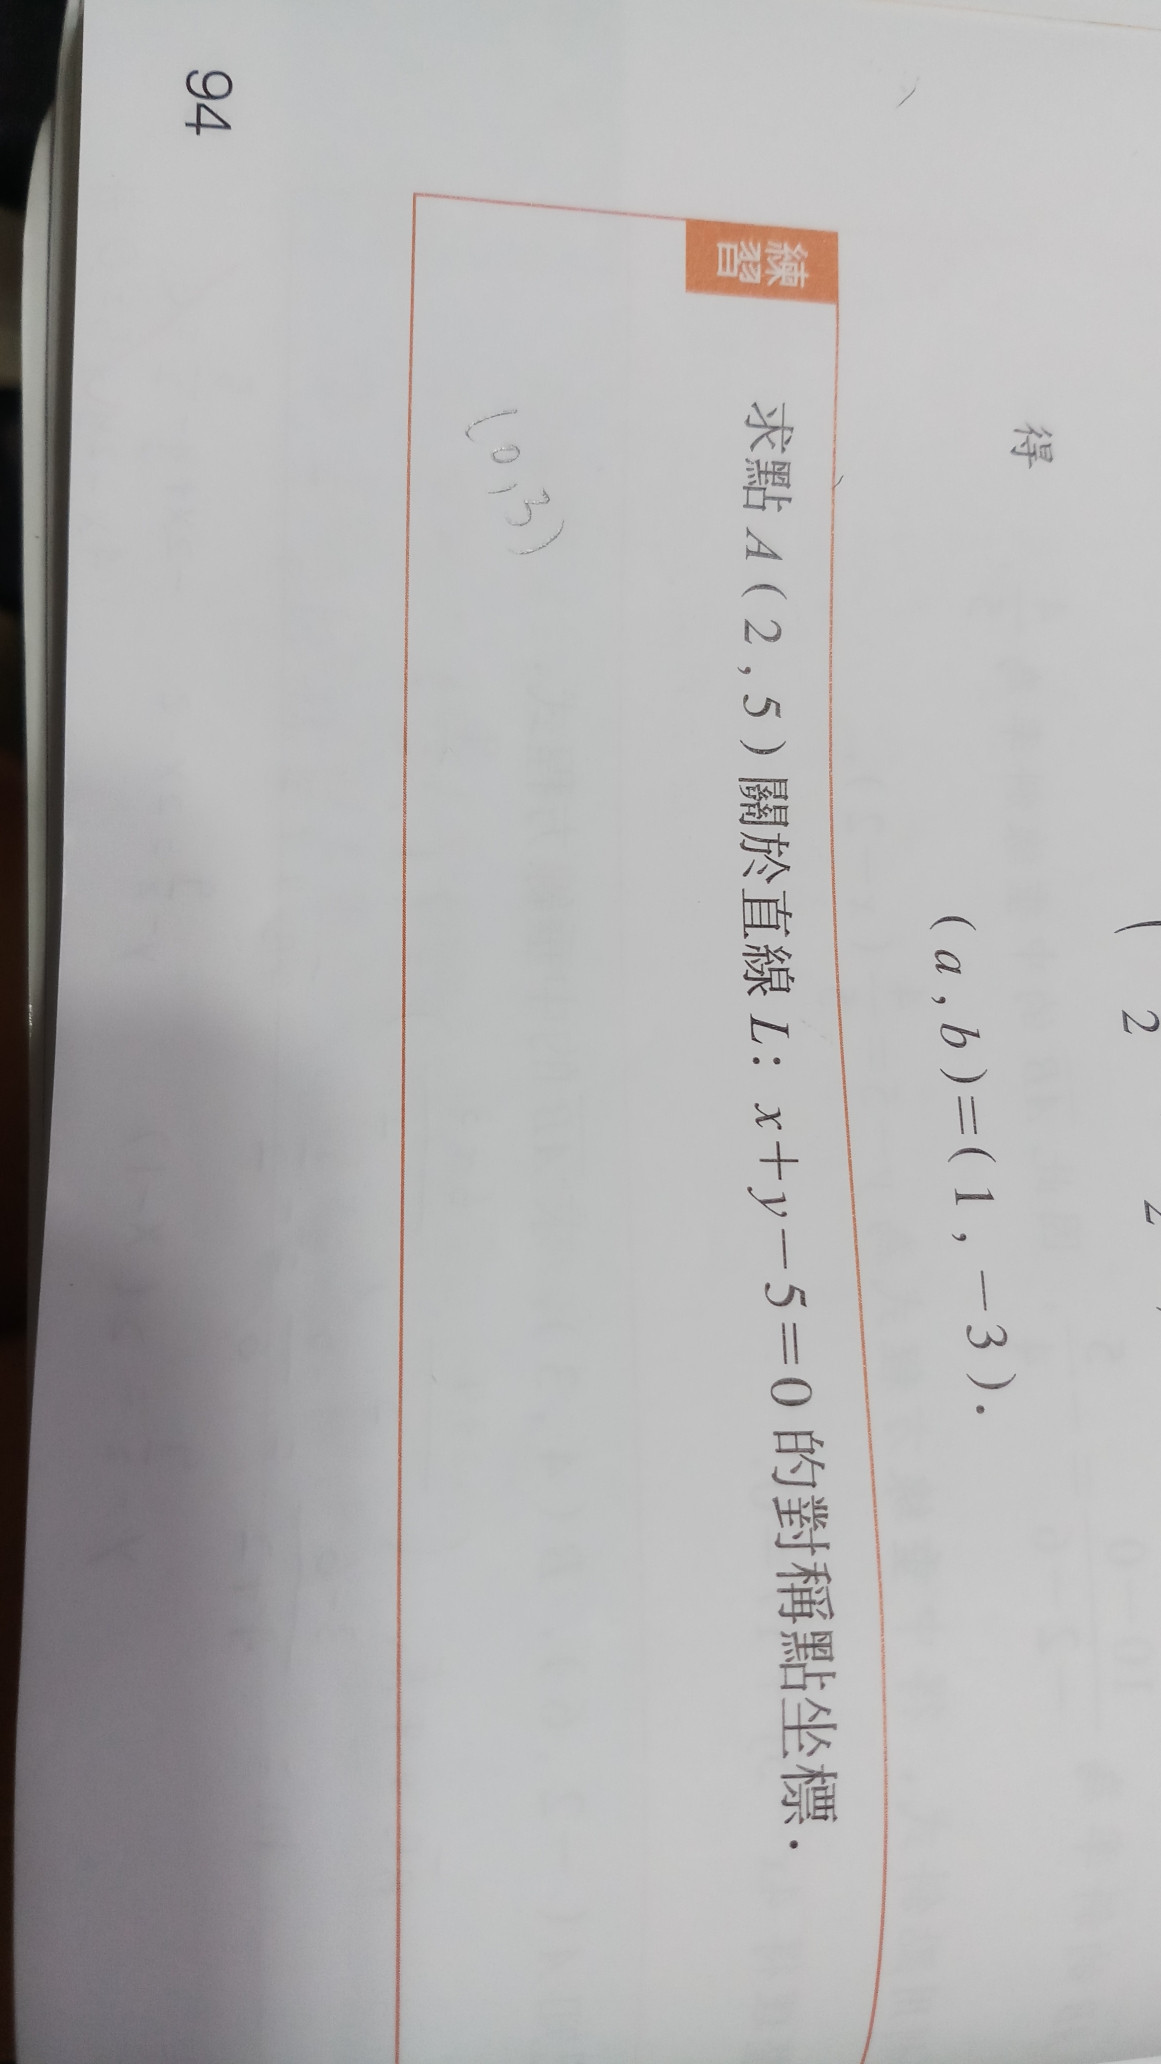 2
得
(a,b)=(1,-3).
練習
求點A(2,5)關於直線L: x+y-5=0的對稱點坐標.
(0,3)
94